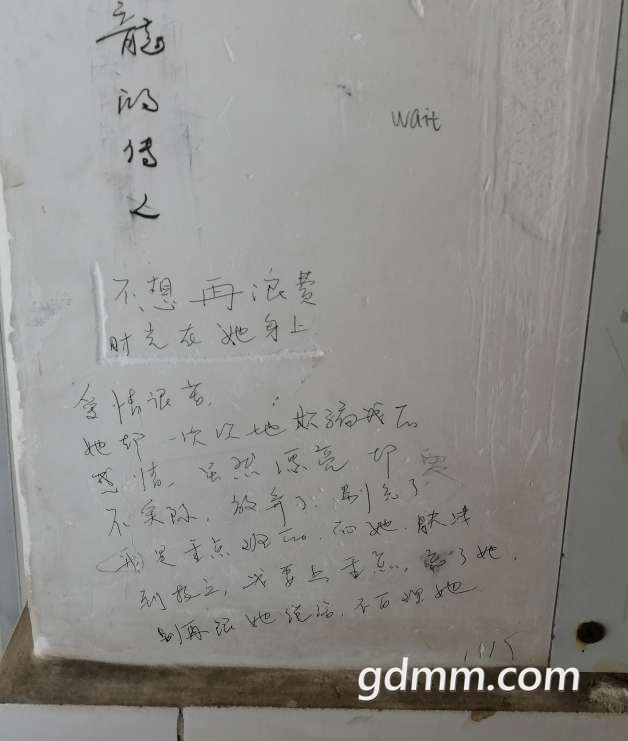 龍的传人
wait
不想再浪費
时光在她身上
爱情很苦.
她却一次次地欺骗我的
感情,虽然漂亮却
不实际.放弃了.别充了
我是重点班的.而她.
到校立,我要上重点,了她.
别再跟她说话.不再理她
gdmm.com